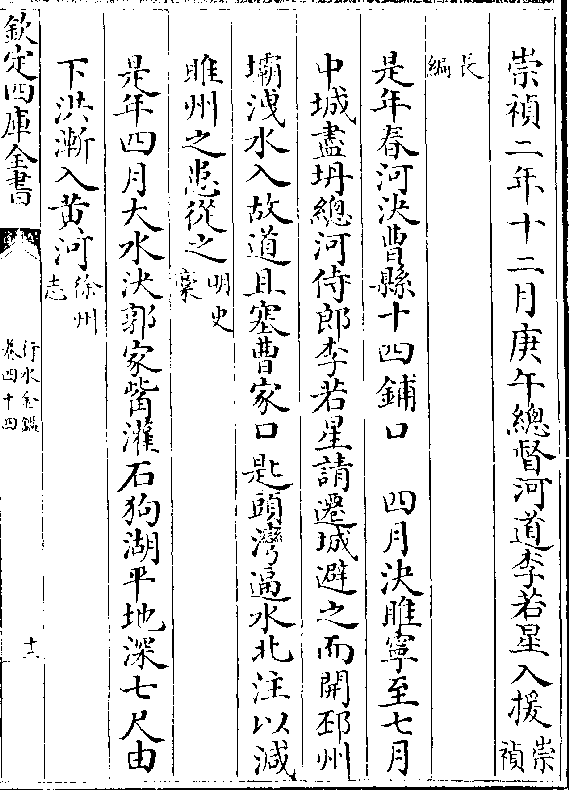 崇禎二年十二月庚午總督河道李若星入援崇禎
長編
是年春河決曹縣十四鋪口　四月決睢寧至七月
中城盡坍總河侍郎李若星請遷城避之而開邳州
壩洩水入故道且塞曹家口匙頭灣逼水北注以減
睢州之患從之明史藁
是年四月大水決郭家嘴灌石狗湖平地深七尺由
下洪漸入黄河徐州志
欽定四庫全書
行水金鑑
卷四十四
十二